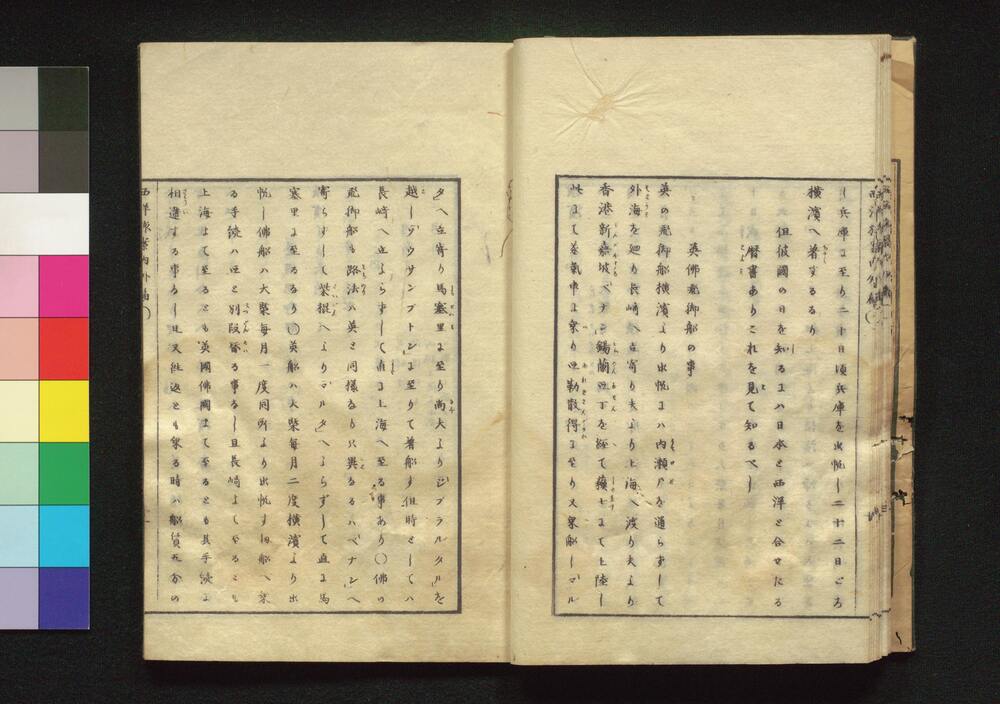 日兵庫に至り二十日頃兵庫を出帆し二十二日ごろ
横濱へ着するなり
但彼國の日を知るには日本と西洋と合せたる
暦書ありこれを見て知るべし
英佛飛脚船の事
英の飛脚船横濱より出帆すれば内瀬戸を通らずして
外海を廻り長崎へ立寄り夫より上海へ渡り夫より
香港新嘉坡ペナン錫蘭亜丁を経て蘇士にて上陸し
此にて蒸氣車に乗り亜勒散得に至り又乗船しマル
タへ立寄り馬塞里に至り尚夫よりジブラルタルを
越しサウサンプトンに至りて着船す但時としてハ
長崎へ立よらずして直に上海へ至る事あり〇佛の
飛脚船も路法ハ英と同様なり只異なるハペナンへ
寄らずして柴棍へよりマルタへよらずして直に馬
塞里に至るなり〇英船ハ大槩毎月二度横濱より出
帆し佛船ハ大槩毎月一度同所より出帆す两船へ乗
る手續ハ亜と別段替る事なし且長崎よて至るとも
上海よて至るとも英國佛國よて至るとも其手續に
相違する事なし且又往返とも乗る時ハ船賃五分の
西洋旅案内外篇